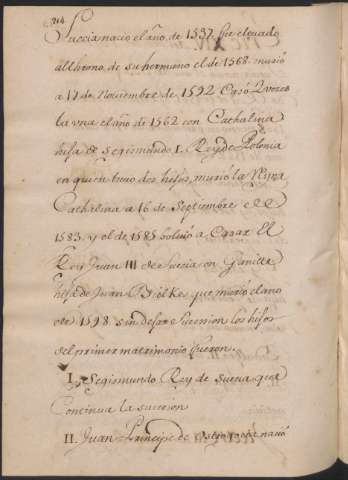 214
Suecia nacio el año de 1537 fue eleuado
al throno de su hermano el de 1568. murió
a 17 de Noviembre de 1592 Casó 2 vezes
la vna el año de 1562 con Cathalina
hija de Segismundo I. Rey de Polonia
en quien tuuo dos hijos, murió la Reyna
Cathalina a 16 de Septiembre de
1583. y el de 1585 boluió a Casar El
Rey Juan III de Suecia con Gunilla
hija de Juan Bielke que murió el año
de 1598 sin dejar Succesion los hijos
del primer matrimonio fueron.
I. Segismundo Rey de Suecia que
Continua la succesion
II. Juan Principe de nació